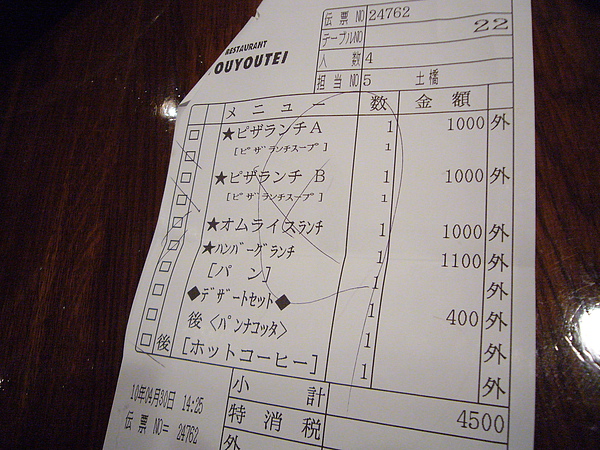 RESTAURANT
OUYOUTEI
伝票NO 24762
テーブルNO 22
人数 4
担当NO 5 土橋
メニュー 数 金額
★ピザランチA 1 1000 外
[ピザランチスープ] 1
★ピザランチ B 1 1000 外
[ピザランチスープ] 1
★オムライスランチ 1 1000 外
★ハンバーグランチ 1 1100 外
[パン] 1 外
◆デザートセット◆ 1 400 外
後〈パンナコッタ〉 1 外
後 [ホットコーヒー] 1 外
小計 4500
特消税
外
10年04月30日 14:25
伝票 NO= 24762